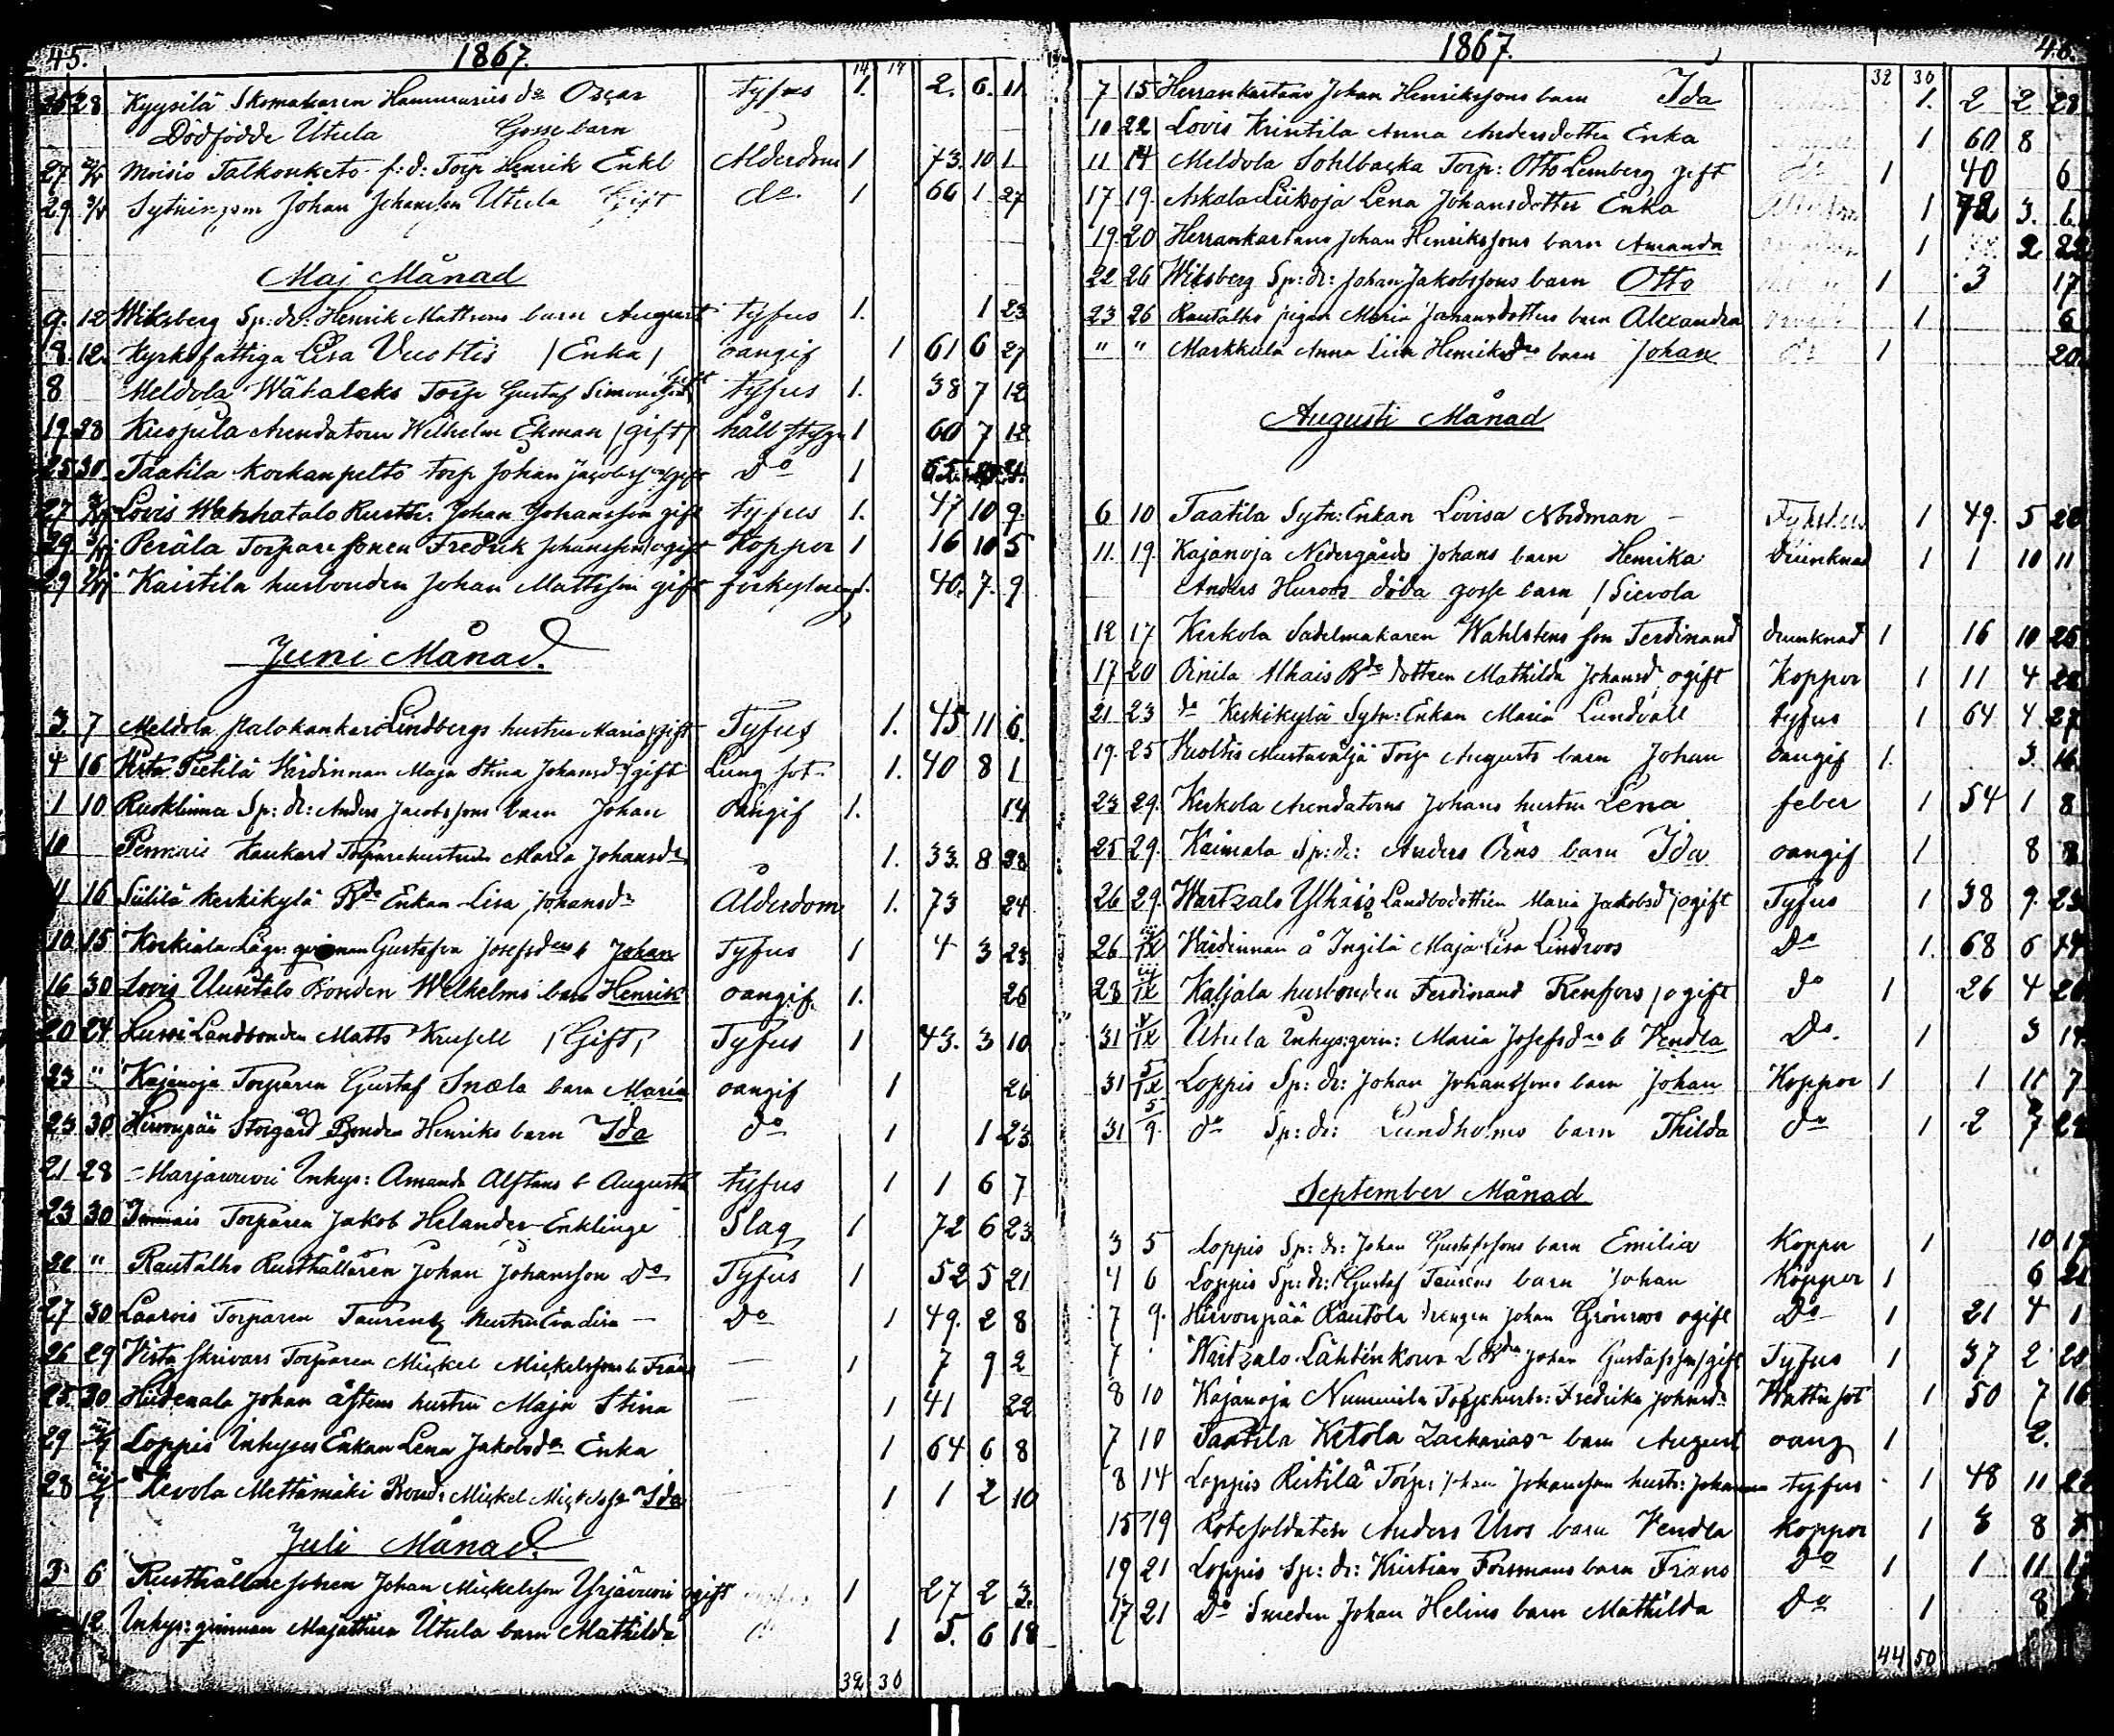 45. 1867.
14 17
25 28 Kyysilä Skomakaren Hammarins ds Oscar tyfus 1. 2. 6. 11
Dödfödde Utula Gosse barn
27 Moisio Talkonketo f: d: Torp Henrik Enkl Ålderdom 1 73. 10 1
29 Sytningsm Johan Johansson Utula Gift do 1 66 1 27
Maj Månad
9. 12 Wiksberg Sp: dr: Henrik Mattssons barn August tyfus 1. 1 23
8. 12. Kyrkofattiga Lisa Vuoltis /Enka/ oangif 1 61 6 27
8 Meldola Wätaleks Torp Gustaf Simonsson gift tyfus 1. 38 7 12
19 28 Kuopula Arendatorn Wilhelm Ekman /gift/ håll styng 1 60 7 12
25 30. Taatila Korkanpelto torp Johan Jacobsson gift do 1 65
27 Lovis Wahhatalo Rusth: Johan Johansson gift tyfus 1. 47 10 9.
29 Peräla Torpare sonen Fredrik Johansson ogift Koppor 1 16 10 5
29 Kaistila husbonden Johan Mattsson gift förkylning 1. 40. 7. 9
Juni Månad.
3. 7 Meldola Palokankare Lindbergs hustru Maria gift Tyfus 1. 45 11 6.
4 16 Wista Pietilä Värdinnan Maja Stina Johansdr gift Lung sot 1. 40 8 1
1 10 Ruoklinna Sp: dr: Anders Jacobssons barn Johan oangif 1. 14
10 Pennais Kaukard Torparehustrun Maria Johansdr 1. 33. 8 28
11 16 Siililä Keskikylä Bds Enkan Lisa Johansdr Ålderdom 1. 73 24
10. 15 Koskiala Lägr. qvinnan Gustafva Josefsdrs b Johan Tyfus 1 4 3 23
16 30 Lovis Uusitalo Bonden Wilhelms barn Henrik oangif. 1. 26
20 24 Hussi Landbonden Matts Krusell /Gift/ Tyfus 1 43. 3 10
23 " Kajanoja Torparen Gustaf Snæla barn Maria oangif 1 26
23 30 Hirvonpää Storgård Bonden Henriks barn Ida do 1 1 23
21 28 Harjavuori Inhys: Amanda Alftans b Augusta tyfus 1 1 6 7
23 30 Torparen Jakob Helander Enklinge Slag 1 72 6 23
22 " Rautalho Rusthållaren Johan Johansson do Tyfus 1 52 5 21
27 30 Laarois Torparen Taurenby hustru Eva Lisa do 1 49. 2 8
26 29 Vista Skrivars Torparen Mickel Mickelssons b. Frans 1 7 9 2
25 30 Hiidenala Johan Åstens hustru Maja Stina 1 41 22
29 Loppis Inhyses Enkan Lena Jakobsdr Enka 1 64 6 8
28 Kevola Mettämäki Bond: Mickel Mickelss Ida 1 1 2 10
Juli Månad.
3 6 Rusthållare sonen Johan Mickelsson Yrjävuori ogift 1 27 2 3.
12 Inhys: qvinnan Majastina Utula barn Mathilda do 1 5. 6 18
32 30
1867. 46.
32 30
7 15 Herrankartano Johan Henrikssons barn Ida 1. 2 2 28
10 22 Lovis Krintila Anna Andersdotter Enka 1 60 8
11 14 Meldola Sohlbacka Torp: Otto Lemberg gift do 1 40 6
17 19. Askala Liikoja Lena Johansdotter Enka 1 72 3. 6
19. 20 Herrankartano Johan Henrikssons barn Amanda 1 2 22
22 26 Wiksberg Sp: dr: Johan Jakobssons barn Otto 1 3 17
23 26 Rautalho pigan Maria Johansdotters barn Alexandra 1 6
" " Markkula Anna Lisa Henriksdrs barn Johan do 1 20
Augusti Månad
6 10 Taatila Sytn: Enkan Lovisa Nordman 1 49. 5 28
11. 19. Kajanoja Nedergårds Johans barn Henrika drunknad 1 1 10 11
Anders Huroos döda gosse barn /Sievola
12 17 Kerkola Sadelmakaren Wahlstens son Ferdinand drunknad 1 16 10 25
17 20 Oinila Alhais Bds dottren Mathilda Johansdr ogift Koppor 1 11 4 22
21 23 do Keskikylä Sytn: Enkan Maria Lundvall tyfus 1 64 4 27
19. 25 Vuoltis Mustavaljä Torp Augusts barn Johan oangif 1. 3. 16
23 29. Kerkola Arendatorns Johans hustru Lena feber 1 54 1 8
25 29. Kaimala Sp: dr: Anders Öhns barn Ida oangif 1 8 8
26 29. Wartzalo Ylhais Landbodottren Maria Jakobsdr ogift Tyfus 1 38 9. 23
26 Värdinnan å Ingilä Maja Lisa Lindroos do 1. 68 6 14
28 Kaljala husbonden Ferdinand Frenfors /ogift do 1 26 4 26
31 Utula Inhys: qvin: Maria Josefsdrs b Vendla do. 1 3 14
31 5/IX Loppis Sp: dr: Johan Johanssons barn Johan Koppor 1 1 11 7
31 5/9. do Sp: dr: Lundholms barn Thilda do 1 2 7 22
September Månad
3 5 Loppis Sp: dr: Johan Gustafssons barn Emilia Koppor 1 10 19
4 6 Loppis Sp: dr: Gustaf Taurens barn Johan Koppor 1 6 21
7 9. Hirvonpää Rautola drengen Johan Grönroos ogift do 1 21 4 1
7 Wartzalo Lähtenkorva L Bdn Johan Gustafsson gift Tyfus 1 37 2 20
8 10 Kajanoja Nummila Torp: hustr: Fredrika Johansdr Wattusot 1 50 7 16
7 10 Taatila Ketola Zacharias barn August oang 1 2.
8 14 Loppis Ristilä Torp: Johan Johansson hustr: Johanna tyfus 1 48 11 22
15 19 Rotesoldaten Anders Uros barn Vendla Koppor 1 3 8 8
19 21 Loppis Sp: dr: Kristian Forsmans barn Frans do 1 1 11 13
17 21 do Smeden Johan Helins barn Mathilda do 1 8
44 50